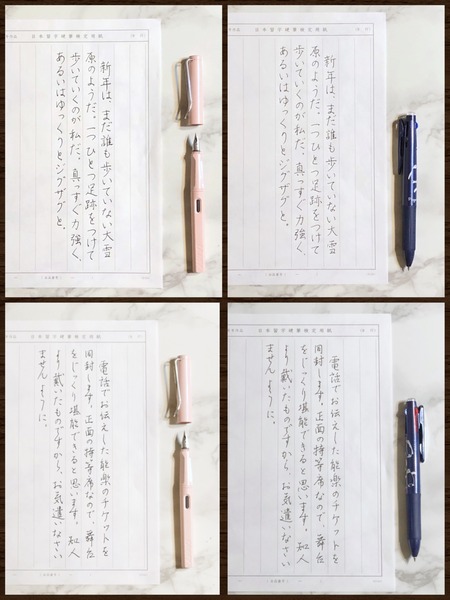 日本習字硬筆検定用紙
新年は、まだ誰も歩いていない大雪
原のようだ。一つひとつ足跡をつけて
歩いていくのが私だ。真っすぐ力強く、
あるいはゆっくりとジグザグと。
日本習字硬筆検定用紙
新年は、まだ誰も歩いていない大雪
原のようだ。一つひとつ足跡をつけて
歩いていくのが私だ。真っすぐ力強く、
あるいはゆっくりとジグザグと。
日本習字硬筆検定用紙
電話でお伝えした能楽のチケットを
同封します。正面の特等席なので、舞台
をじっくり堪能できると思います。知人
より戴いたものですから、お気遣いなさい
ませんように。
日本習字硬筆検定用紙
電話でお伝えした能楽のチケットを
同封します。正面の特等席なので、舞台
をじっくり堪能できると思います。知人
より戴いたものですから、お気遣いなさい
ませんように。